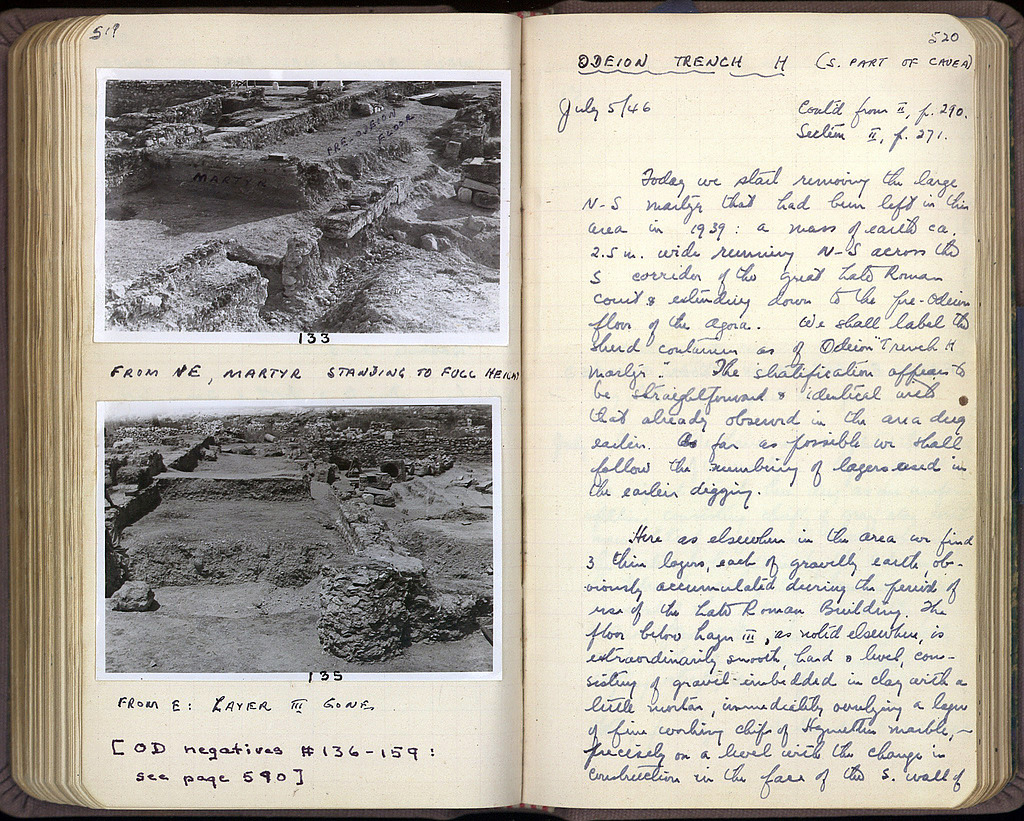 519
MARTYR
PRE-ODEION FLOOR
133
FROM NE, MARTYR STANDING TO FULL HEIGHT
135
FROM E: LAYER III GONE.
[OD negatives #136-159:
see page 590]
520
ODEION TRENCH H (S. PART OF CAVEA)
July 5/46
Cont'd from II, p. 290.
Section II, p. 271.
Today we start removing the large
N-S martyr that had been left in this
area in 1939: a mass of earth ca.
2.5 m. wide running N-S across the
S corridor of the great Late Roman
court & extending down to the pre-Odeion
floor of the Agora. We shall label the
sherd containers as of "Odeion Trench H
martyr". The stratification appears to
be straightforward & identical with
that already observed in the area dug
earlier. As far as possible we shall
follow the numbering of layers used in
the earlier digging.
Here as elsewhere in the area we find
3 thin layers, each of gravelly earth ob-
viously accumulated during the period of
use of the Late Roman Building. The
floor below layer III, as noted elsewhere, is
extraordinarily smooth, hard & level, con-
sisting of gravel imbedded in clay with a
little mortar, immediately overlying a layer
of fine working chips of Hymettian marble, –
precisely on a level with the change in
construction in the face of the S. wall of